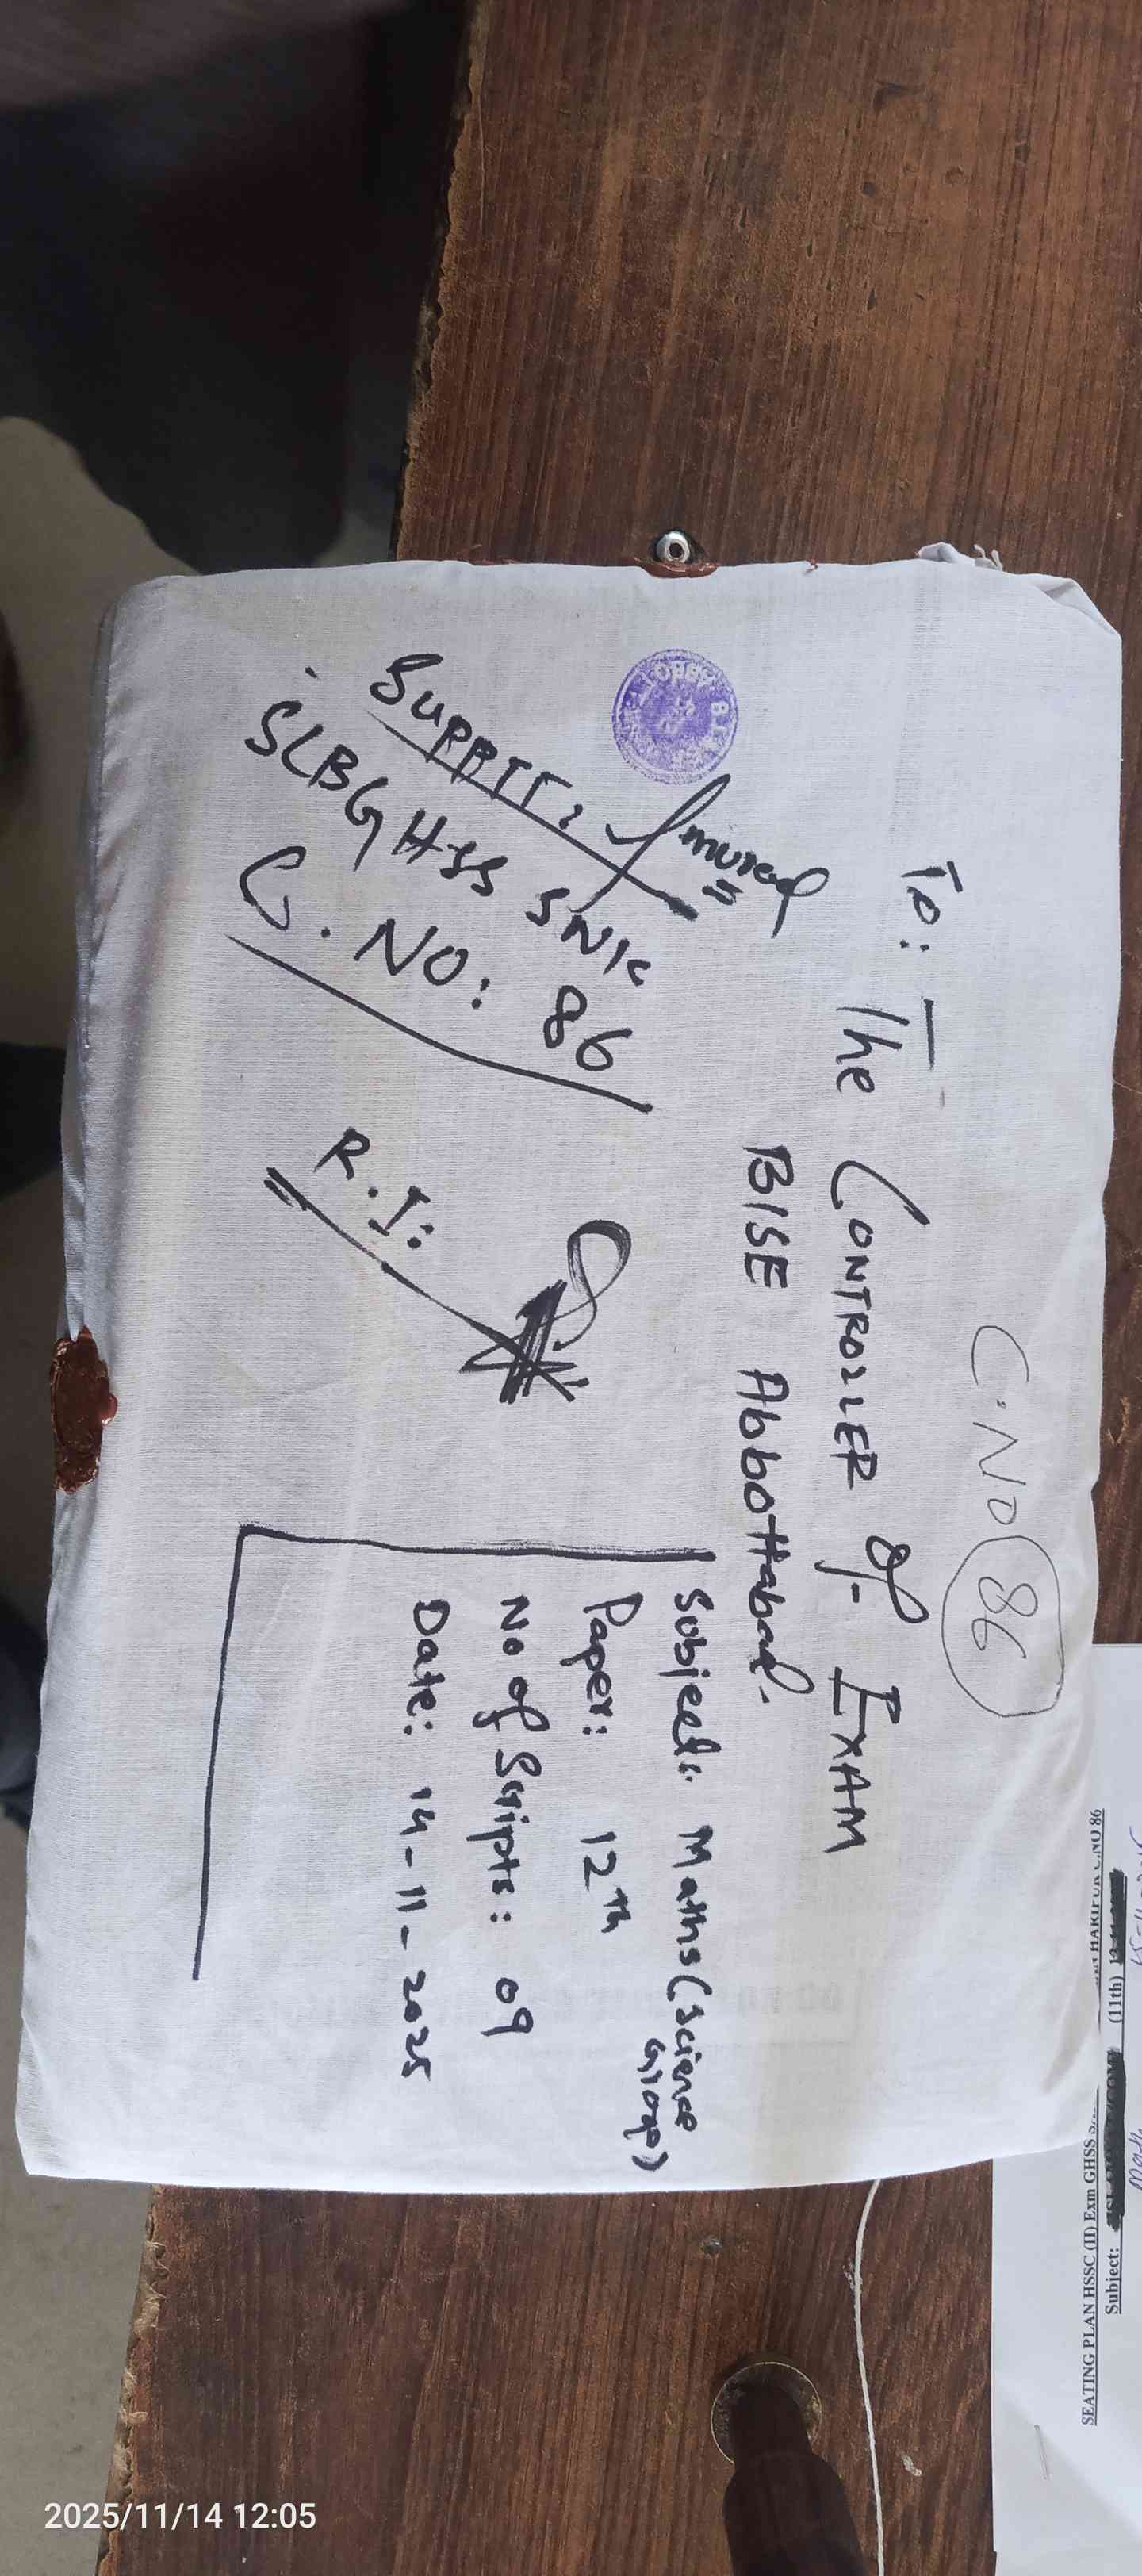 C.NO 86
To: The CONTROLLER of EXAM
BISE Abbottabad.
Supdtt:
SLBGHSS SNK
C. NO: 86
R.I:
Subject: Maths (Science Group)
Paper: 12th
No of Scripts: 09
Date: 14-11-2025
SEATING PLAN HSSC (II) Exm GHSS HARIPUR C.NO 86
Subject: (11th)
2025/11/14 12:05